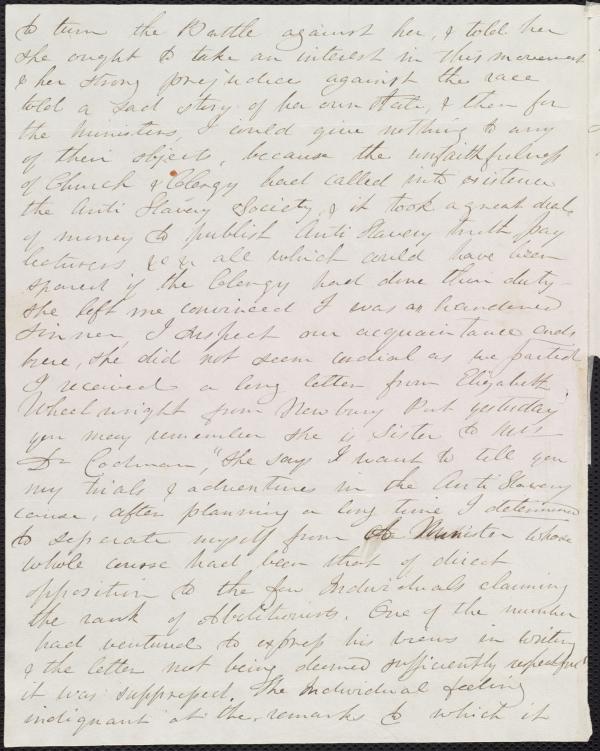 to turn the Battle against her, & told her
she ought to take an interest in this movement
& her strong prejudice against the race
told a sad story of her own State, & then for
the ministers, I could give nothing to any
of their objects, because the unfaithfulness
of Church & Clergy had called into existence
the Anti Slavery Society, & it took a great deal
of money to publish Anti Slavery truth pay
lecturers &c &c all which could have been
spared if the Clergy had done their duty -
she left me convinced I was an hardened
sinner, I suspect our acquaintance ends
here, she did not seem cordial as we parted
I received a long letter from Elizabeth
Wheelwright from Newbury Port yesterday,
you may remember she is Sister to Mrs
Dr Cochman, "she says I want to tell you
my trials & adventures in the Anti Slavery
cause, after planning a long time I determined
to seperate myself from a Minister whose
whole course had been that of direct
opposition to the few Individuals claiming
the rank of Abolitionists. One of the number
had ventured to express his views in writing
& the letter not being deemed sufficiently respectful
it was suppressed. The Individual feeling
indignant at the remarks to which it